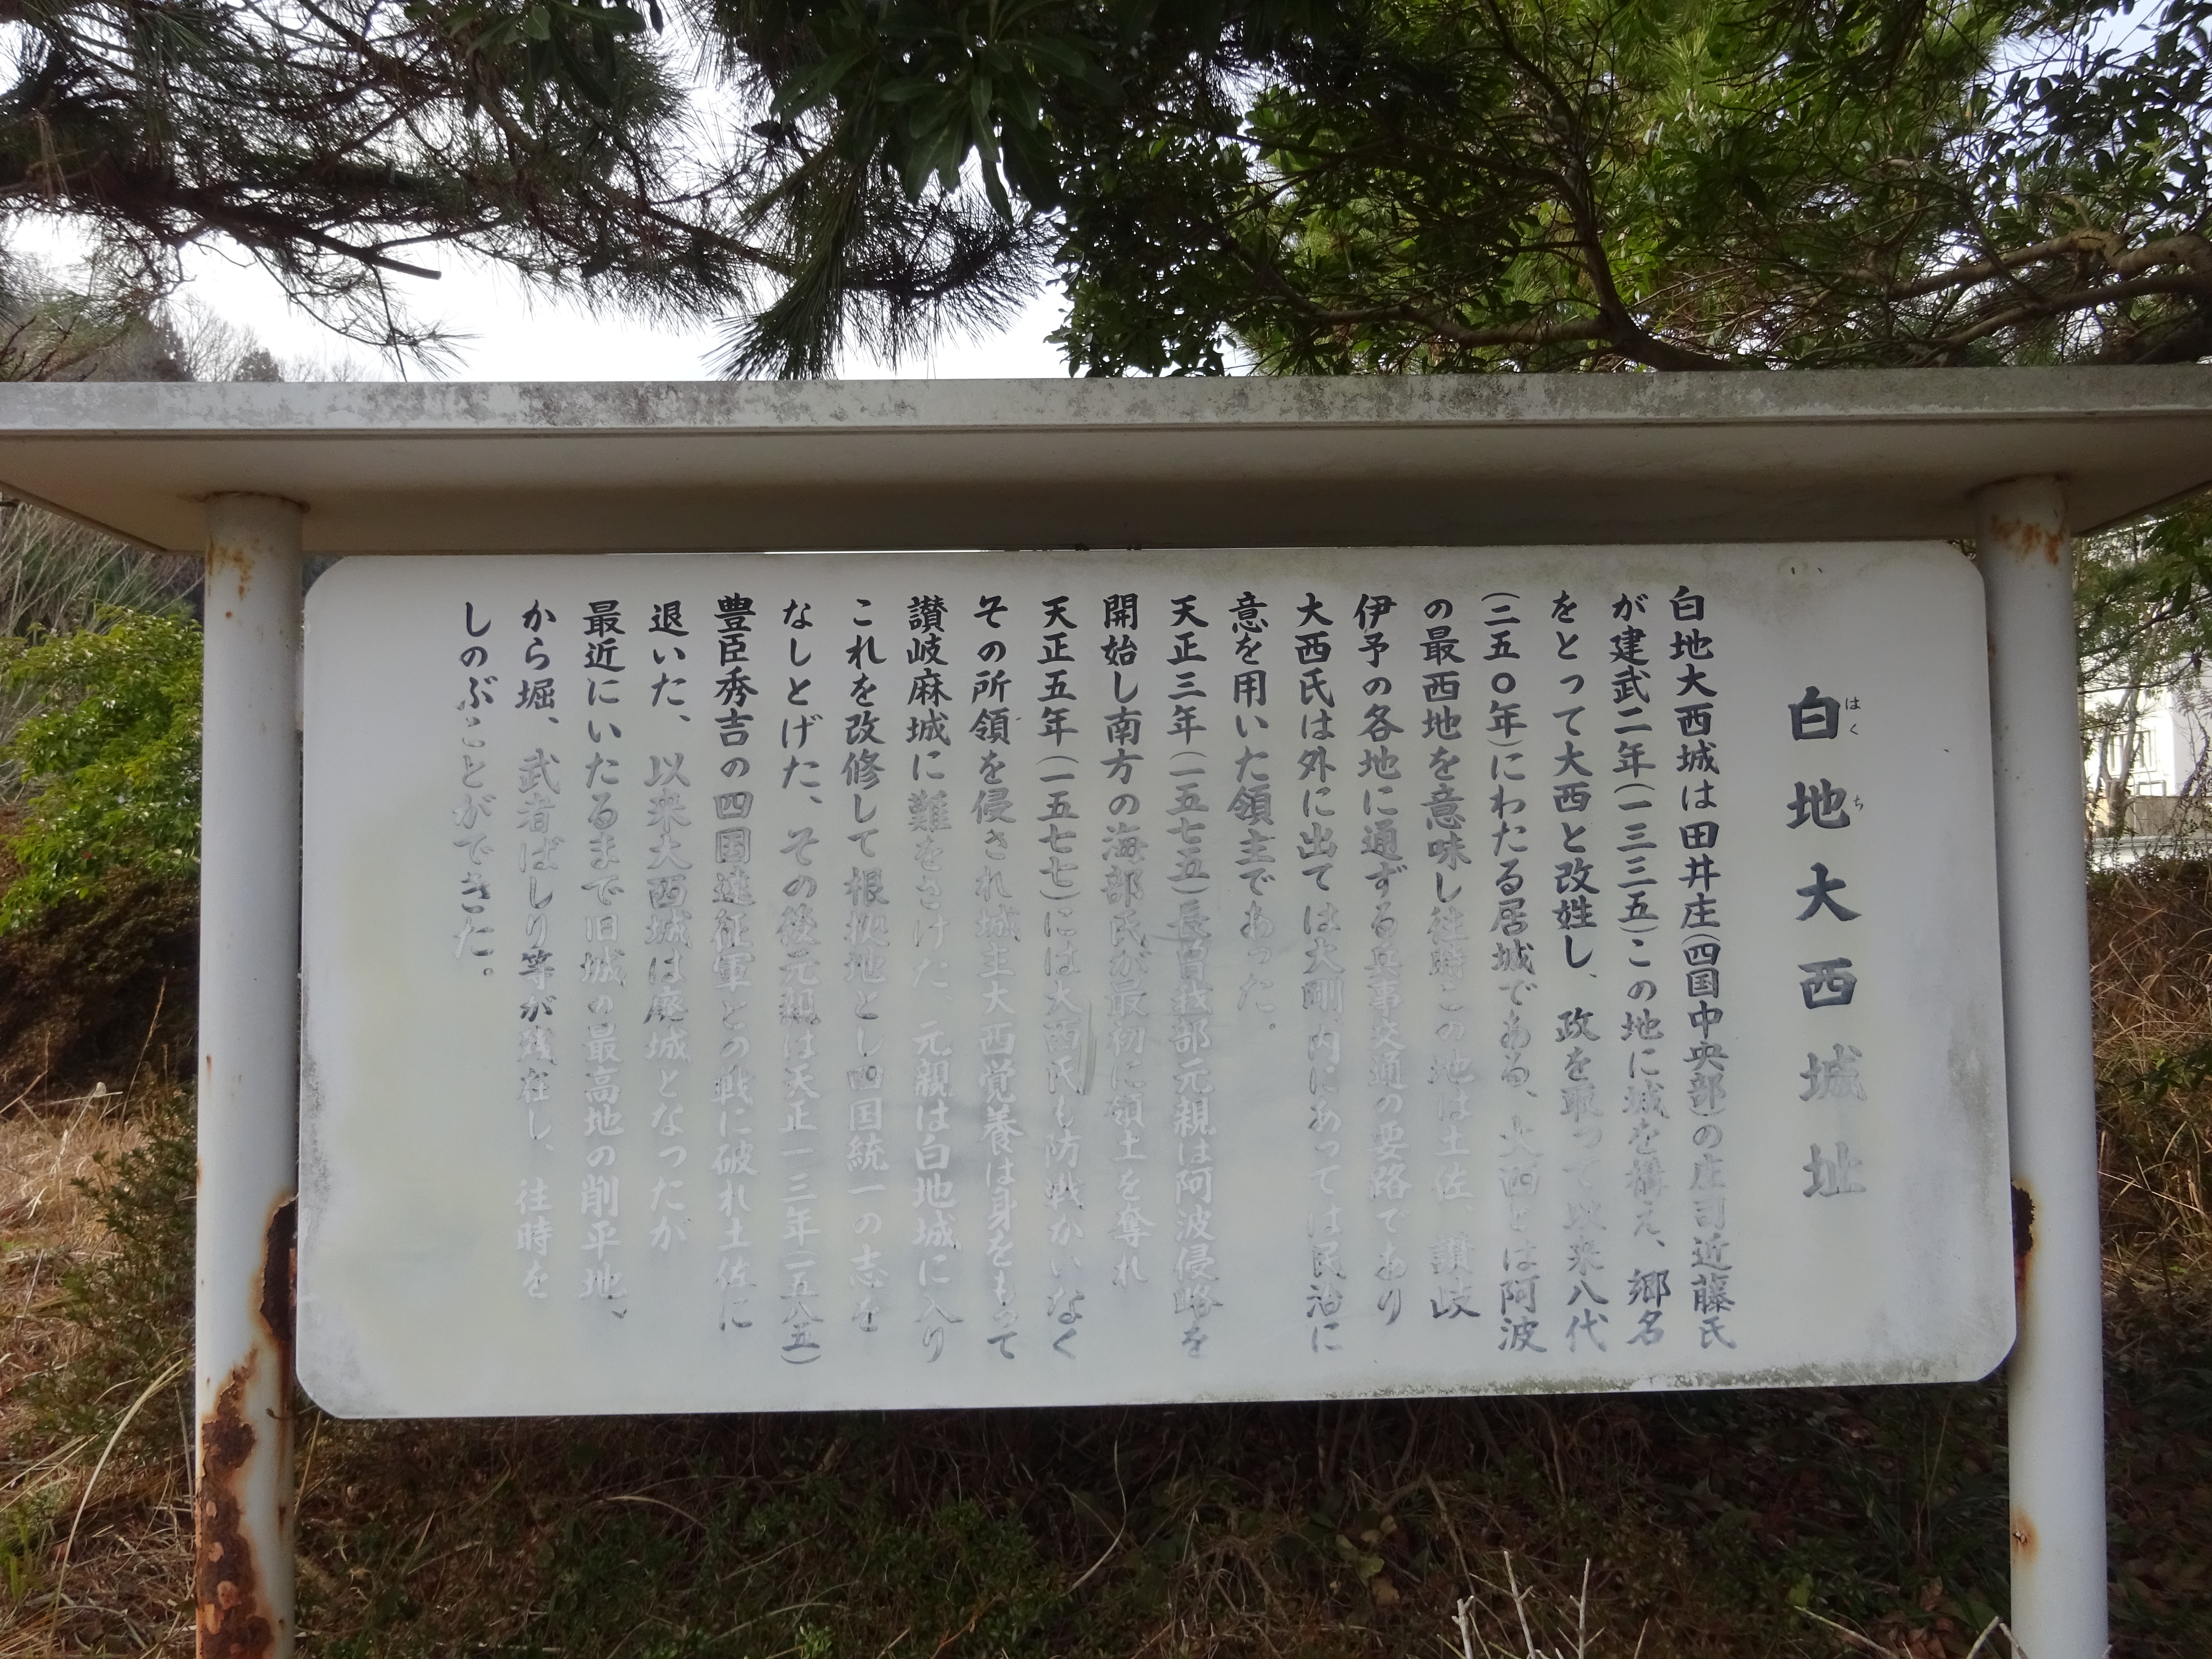 白地大西城址
はくち
白地大西城は田井庄(四国中央部)の庄司近藤氏
が建武二年(一三三五)この地に城を構え、郷名
をとって大西と改姓し、政を取って以来八代
(二五〇年)にわたる居城である、大西とは阿波
の最西地を意味し往時この地は土佐、讃岐
伊予の各地に通ずる兵事交通の要路であり
大西氏は外に出ては大剛内にあっては民治に
意を用いた領主であった。
天正三年(一五七五)長曽我部元親は阿波侵略を
開始し南方の海部氏が最初に領土を奪れ
天正五年(一五七七)には大西氏も防戦かいなく
その所領を侵され城主大西覚養は身をもって
讃岐麻城に難をさけた 元親は白地城に入り
これを改修して根拠地とし四国統一の志を
なしとげた、その後元親は天正一三年(一五八五)
豊臣秀吉の四国遠征軍との戦に破れ土佐に
退いた、以来大西城は廃城となったが
最近にいたるまで旧城の最高地の削平地、
から堀、武者ばしり等が残在し、往時を
しのぶことができた。